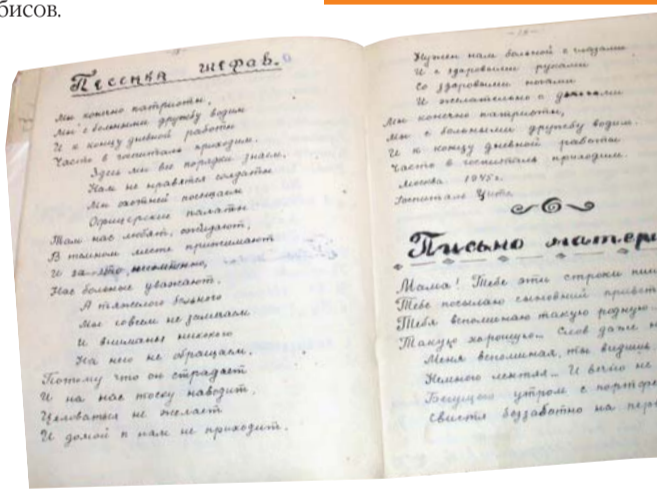 бисов.
- 18 -
Песенка шефов.
Мы конечно патриоты,
Мы с больными дружбу водим
И к концу дневной работы
Часто в госпиталь приходим.
Здесь мы все порядки знаем,
Нам не нравятся солдаты
Мы охотней посещаем
Офицерские палаты
Там нас любят, ожидают,
В темном месте прижимают
И за это несомненно,
Нас больные уважают.
А тяжелого больного
Мы совсем не замечаем
И вниманья никакого
На него не обращаем.
Потому что он страдает
И на нас тоску наводит.
Целоваться не желает
И домой к нам не приходит.
- 19 -
Нужен нам больной с глазами
И с здоровыми руками
Со здоровыми ногами
И желательно с деньгами
Мы конечно патриоты,
Мы с больными дружбу водим.
И к концу дневной работы
Часто в госпиталь приходим.
Москва 1945г.
Госпиталь
Письмо матери
Мама! Тебе эти строки пиш
Тебе посылаю сыновний привет
Тебя вспоминаю такую родную
Такую хорошую... Слов даже н
Меня вспоминая, ты видишь
Немного лентяя... И вечно не
Бегущего утром с портфел
Свистя беззаботно на пер